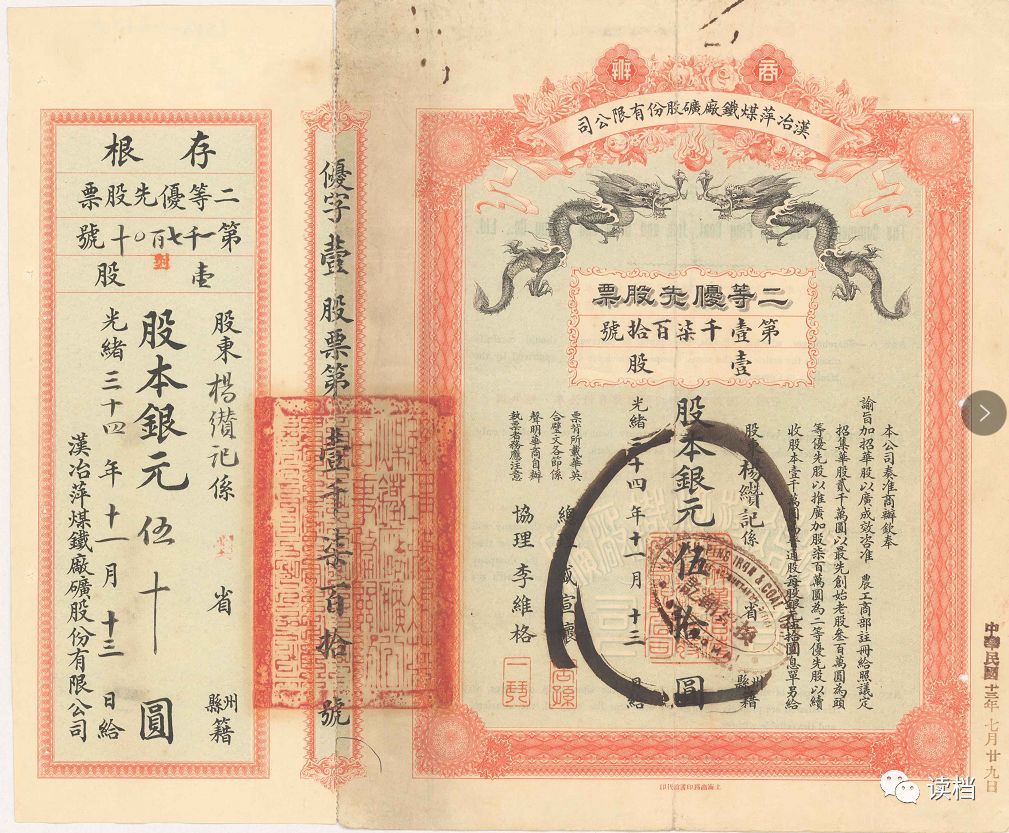 商辦
漢冶萍煤鐵廠礦股份有限公司
二等優先股票
第壹千柒百拾號
壹股
本公司奏准商辦欽奉
諭旨加招華股以廣成效咨准 農工商部註冊給照議定
招集華股貳千萬圓以最先創始老股叁百萬圓為頭
等優先股以推廣加股柒百萬圓為二等優先股以續
收股本壹千萬圓 普通股每股銀元伍拾圓息單另給
股東楊纘記係 省 州縣籍
股本銀元伍拾圓
光緒三十四年十一月十三日給
總 盛宣懷
協理 李維格
票背所載華英
合璧文各節係
聲明華商自辦
執票者務應注意
PING IRON & COAL
換
上海商務印書館代印
中華民國十三年七月廿九日
優字壹股票第壹千柒百拾號
存根
二等優先股票
第一千七百〇十號
對
壹股
股東楊纘記係 省 州縣籍
股本銀元伍十圓
光緒三十四年十一月十三日給
漢冶萍煤鐵廠礦股份有限公司
读档